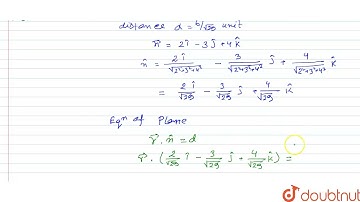 distance d = 6/√29 unit
n⃗ = 2î - 3ĵ + 4k̂
n̂ = 2î/√2²+3²+4² - 3/√2²+3²+4² ĵ + 4/√2²+3²+4² k̂
= 2/√29 î - 3/√29 ĵ + 4/√29 k̂
Eqn of Plane
r⃗. n̂ = d
r⃗. (2/√29 î - 3/√29 ĵ + 4/√29 k̂) =
doubtnut